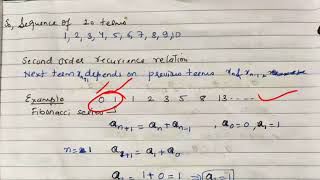 So, Sequence of 10 terms
1, 2, 3, 4, 5, 6, 7, 8, 9, 10
Second order recurrence relation
Next term depends on previous terms
Example 0 1 1 2 3 5 8 13 ....
Fibonacci series
a_{n+1} = a_n + a_{n-1}, a_0=0, a_1=1
n=1 a_{1+1} = a_1 + a_0
1+0 = 1